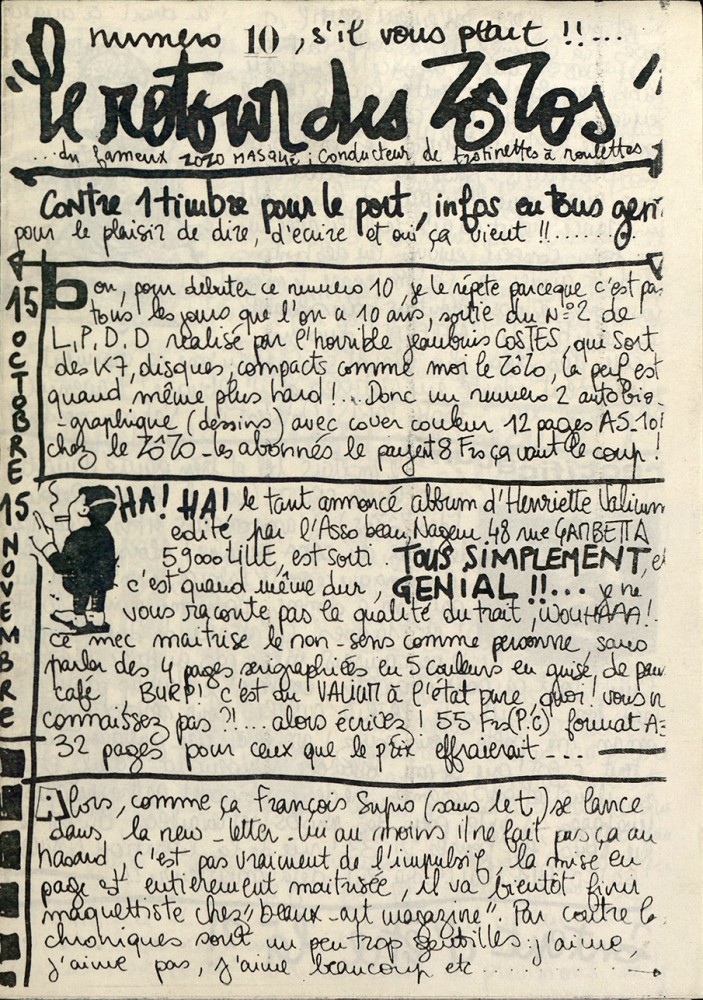 numero 10, s'il vous plait !!...
"le retour des ZÔZOs"
...du fameux ZOZO MASQUé ; conducteur de trotinettes à roulettes
Contre 1 timbre pour le port, infos en tous genr
pour le plaisir de dire, d'écrire et oui ça vient !!......
15 OCTOBRE 15 NOVEMBRE
bon, pour débuter ce numero 10, je le répète parceque c'est pas
tous les jours que l'on a 10 ans, sortie du N°2 de
L.P.D.D réalisé par l'horrible jeanlouis COSTES, qui sort
des K7, disques, compacts comme moi le Zôzo, la perf est
quand même plus hard !... Donc un numero 2 autobio-
-graphique (dessins) avec cover couleur 12 pages A5.10
chez le ZÔZO _ les abonnés le payent 8 Frs ça vaut le coup !
HA! HA! le tant annoncé album d'Henriette Valium
edité par l'Asso beau, Nageur 48 rue GAMBETTA
59000 LILLE, est sorti. TOUS SIMPLEMENT, et
c'est quand même dur, GENIAL !!... je ne
vous raconte pas la qualité du trait, WOUHAAA!.
ce mec maitrise le non-sens comme personne, sans
parler des 4 pages serigraphiées en 5 couleurs en guise, de pau
café, BURP! c'est du VALIUM à l'état pure, quoi! vous n
connaissez pas ?!... alors écrivez ! 55 Frs(P.C) format A
32 pages pour ceux que le prix effraierait _...
Alors, comme ça François Supio (sans le t,) se lance
dans la new-letter. Lui au moins il ne fait pas ça au
hasard, c'est pas vraiment de l'impulsif, la mise en
page est entierement maitrisée, il va bientôt finir
maquettiste chez "beaux-art magazine". Par contre le
chroniques sont un peu trop gentilles : j'aime,
j'aime pas, j'aime beaucoup etc..........